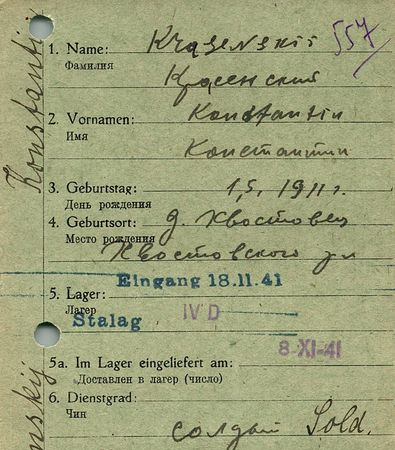 1. Name: Krasenskii 557
Фамилия Красенский
2. Vornamen: Konstantin
Имя Константин
3. Geburtstag: 1,5, 1911 г.
День рождения
4. Geburtsort: д. Хвостовец
Место рождения
Хвостовского
Eingang 18.11.41
5. Lager: IV D
Лагер
Stalag
8-XI-41
5a. Im Lager eingeliefert am:
Доставлен в лагер (число)
6. Dienstgrad:
Чин
солдат Sold.
Konstanti
nskij